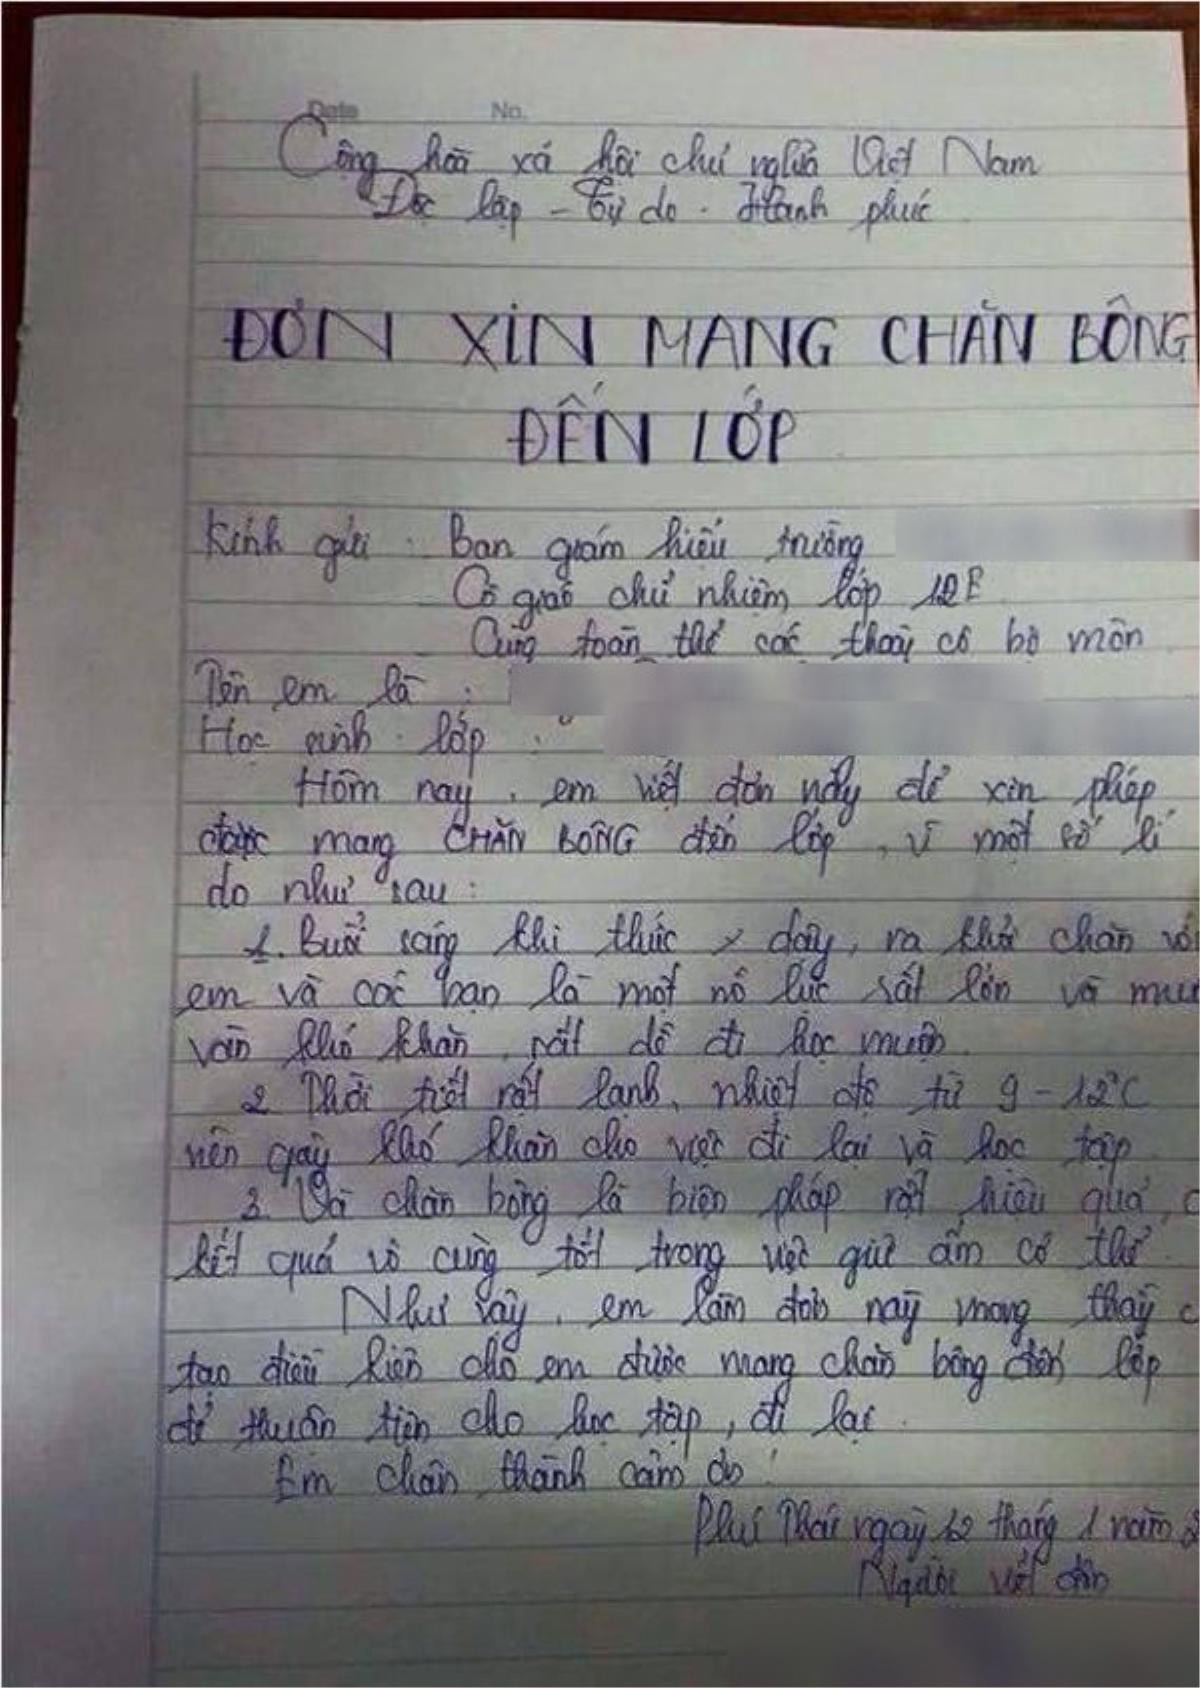 Date No.
Công hoà xã hội chủ nghĩa Việt Nam
Độc lập - Tự do - Hạnh phúc
ĐƠN XIN MANG CHĂN BÔNG
ĐẾN LỚP
Kính gửi : Ban giám hiệu trường
Cô giáo chủ nhiệm lớp 12E
Cùng toàn thể các thầy cô bộ môn
Tên em là :
Học sinh lớp :
Hôm nay, em viết đơn này để xin phép
được mang CHĂN BÔNG đến lớp, vì một số lí
do như sau :
1. Buổi sáng khi thức dậy, ra khỏi chăn
em và các bạn là một nỗ lực rất lớn và
vàn khó khăn, rất dễ đi học muộn.
2. Thời tiết rất lạnh, nhiệt độ từ 9 - 12°C
nên gây khó khăn cho việc đi lại và học tập
3. Và chăn bông là biện pháp rất hiệu quả,
kết quả vô cùng tốt trong việc giữ ấm cơ thể.
Như vậy, em làm đơn này mong thầy
tạo điều kiện cho em được mang chăn bông đến lớp
để thuận tiện cho học tập, đi lại.
Em chân thành cảm ơn !
Phú Thái ngày 12 tháng 1 năm
Người viết đơn